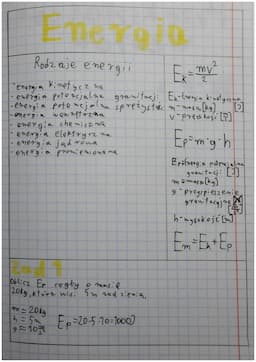 Energia
Rodzaje energii
- energia kinetyczna
- energia potencjalna grawitacji
- energia potencjalna sprężystości
- energia wewnętrzna
- energia chemiczna
- energia elektryczna
- energia jądrowa
- energia promieniowania
Ek = mv²/2
Ek - energia kinetyczna [J]
m - masa [kg]
v - prędkość
Ep = m·g·h
Ep - energia potencjalna
grawitacji [J]
m = masa [kg]
g - przyspieszenie
grawitacyjne
h - wysokość [m]
Em = Ek + Ep
Zad 1
Oblicz Ep cegły o masie
20kg, która wisi 5m nad ziemią.
m = 20kg
h = 5m
g = 10
Ep = 20·5·10 = 1000J